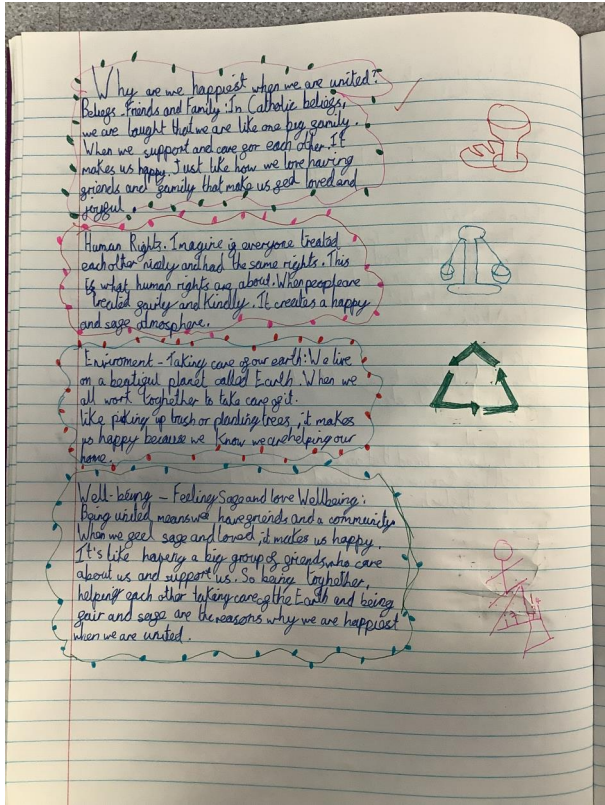 Why are we happiest when we are united?
Beliegs - Friends and Family: In Catholic beliegs,
we are taught that we are like one big family.
When we support and care for each other. It
makes us happy. Just like how we love having
friends and family that make us feel loved and
joyful.
Human Rights. Imagine if everyone treated
each other nicely and had the same rights. This
is what human rights are about. When people are
treated fairly and kindly. It creates a happy
and safe atmosphere.
Enviroment - Taking care of our earth: We live
on a beautiful planet called Earth. When we
all work toghether to take care of it.
like picking up trash or planting trees, it makes
us happy because we know we are helping our
home.
Well-being - Feeling Safe and love Wellbeing:
Being united means we have friends and a community
When we feel safe and loved, it makes us happy.
It's like having a big group of friends who care
about us and support us. So being toghether,
helping each other taking care of the Earth and being
fair and safe are the reasons why we are happiest
when we are united.